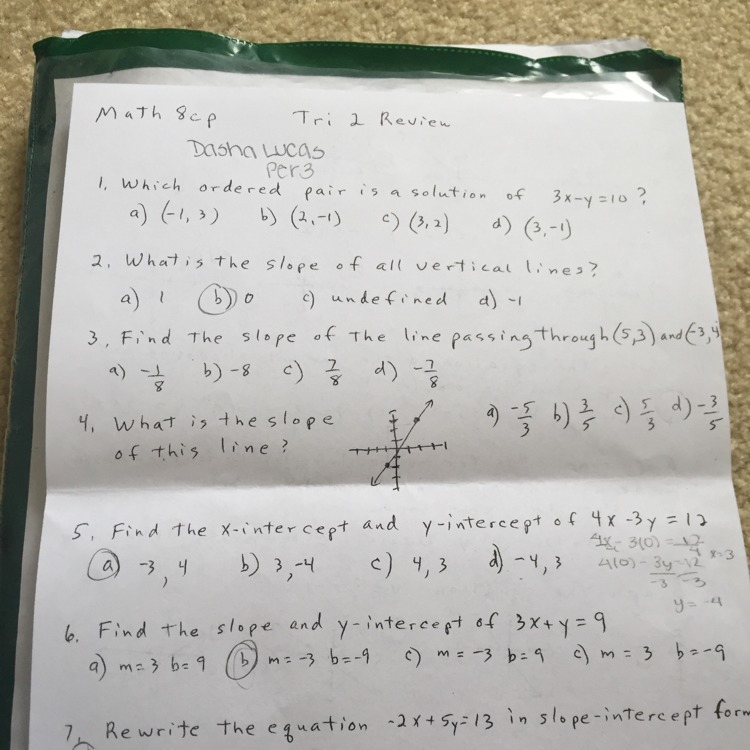 Math 8cp Tri 2 Review
Dasha Lucas
Per 3
1. Which ordered pair is a solution of 3x-y=10?
a) (-1, 3) b) (2,-1) c) (3,2) d) (3,-1)
2. What is the slope of all vertical lines?
a) 1 b) 0 c) undefined d) -1
3. Find the slope of the line passing through (5,3) and (-3,4
a) -1/8 b) -8 c) 7/8 d) -7/8
4. What is the slope a) -5/3 b) 3/5 c) 5/3 d) -3/5
of this line?
5. Find the x-intercept and y-intercept of 4x-3y=12
4x-3(0)=12
4 4 x=3
a) -3, 4 b) 3,-4 c) 4, 3 d) -4, 3 4(0)-3y=12
-3 -3
y=-4
6. Find the slope and y-intercept of 3x+y=9
a) m=3 b=9 b) m=-3 b=-9 c) m=-3 b=9 c) m=3 b=-9
7. Rewrite the equation -2x+5y=13 in slope-intercept form